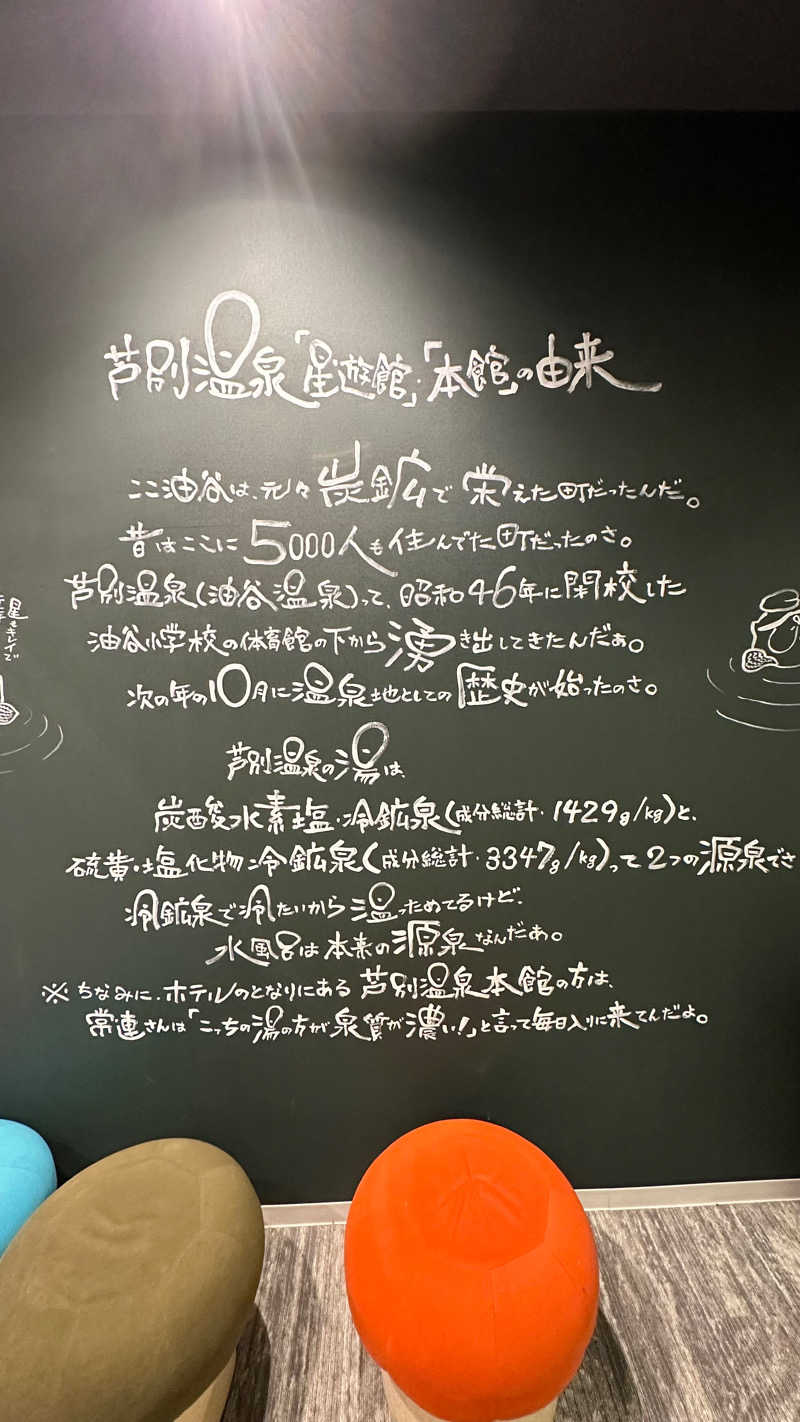 芦別温泉「星遊館」・「本館」の由来
ここ油谷は、元々炭鉱で栄えた町だったんだ。
昔はここに5000人も住んでた町だったのさ。
芦別温泉(油谷温泉)って、昭和46年に閉校した
油谷小学校の体育館の下から湧き出してきたんだぁ。
次の年の10月に温泉地としての歴史が始ったのさ。
芦別温泉の湯は、
炭酸水素塩・冷鉱泉(成分総計・1429g/kg)と、
硫黄・塩化物冷鉱泉(成分総計・3347g/kg)って2つの源泉でさ
冷鉱泉で冷たいから温っためてるけど、
水風呂は本来の源泉なんだぁ。
※ちなみに、ホテルのとなりにある芦別温泉本館の方は、
常連さんは「こっちの湯の方が泉質が濃い!」と言って毎日入りに来てんだよ。
星もキレイで